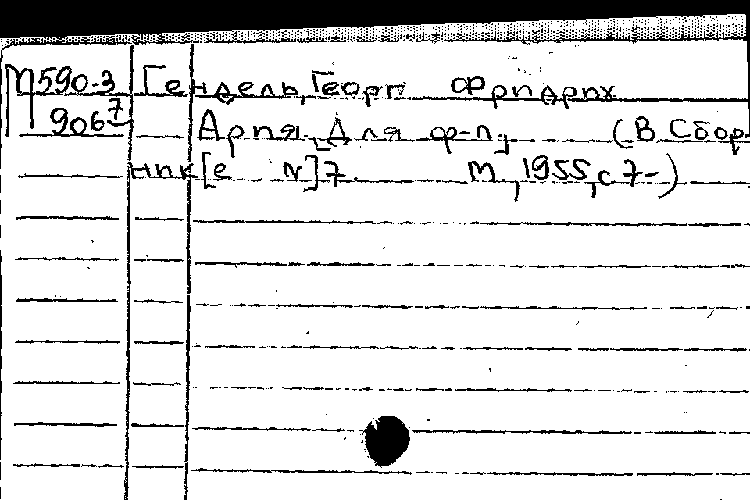 М590-3 Гендель, Георг Фридрих
906 7 Ария. Для ф-п. (В Сбор-
ник[е N]7. М., 1955, с 7-)